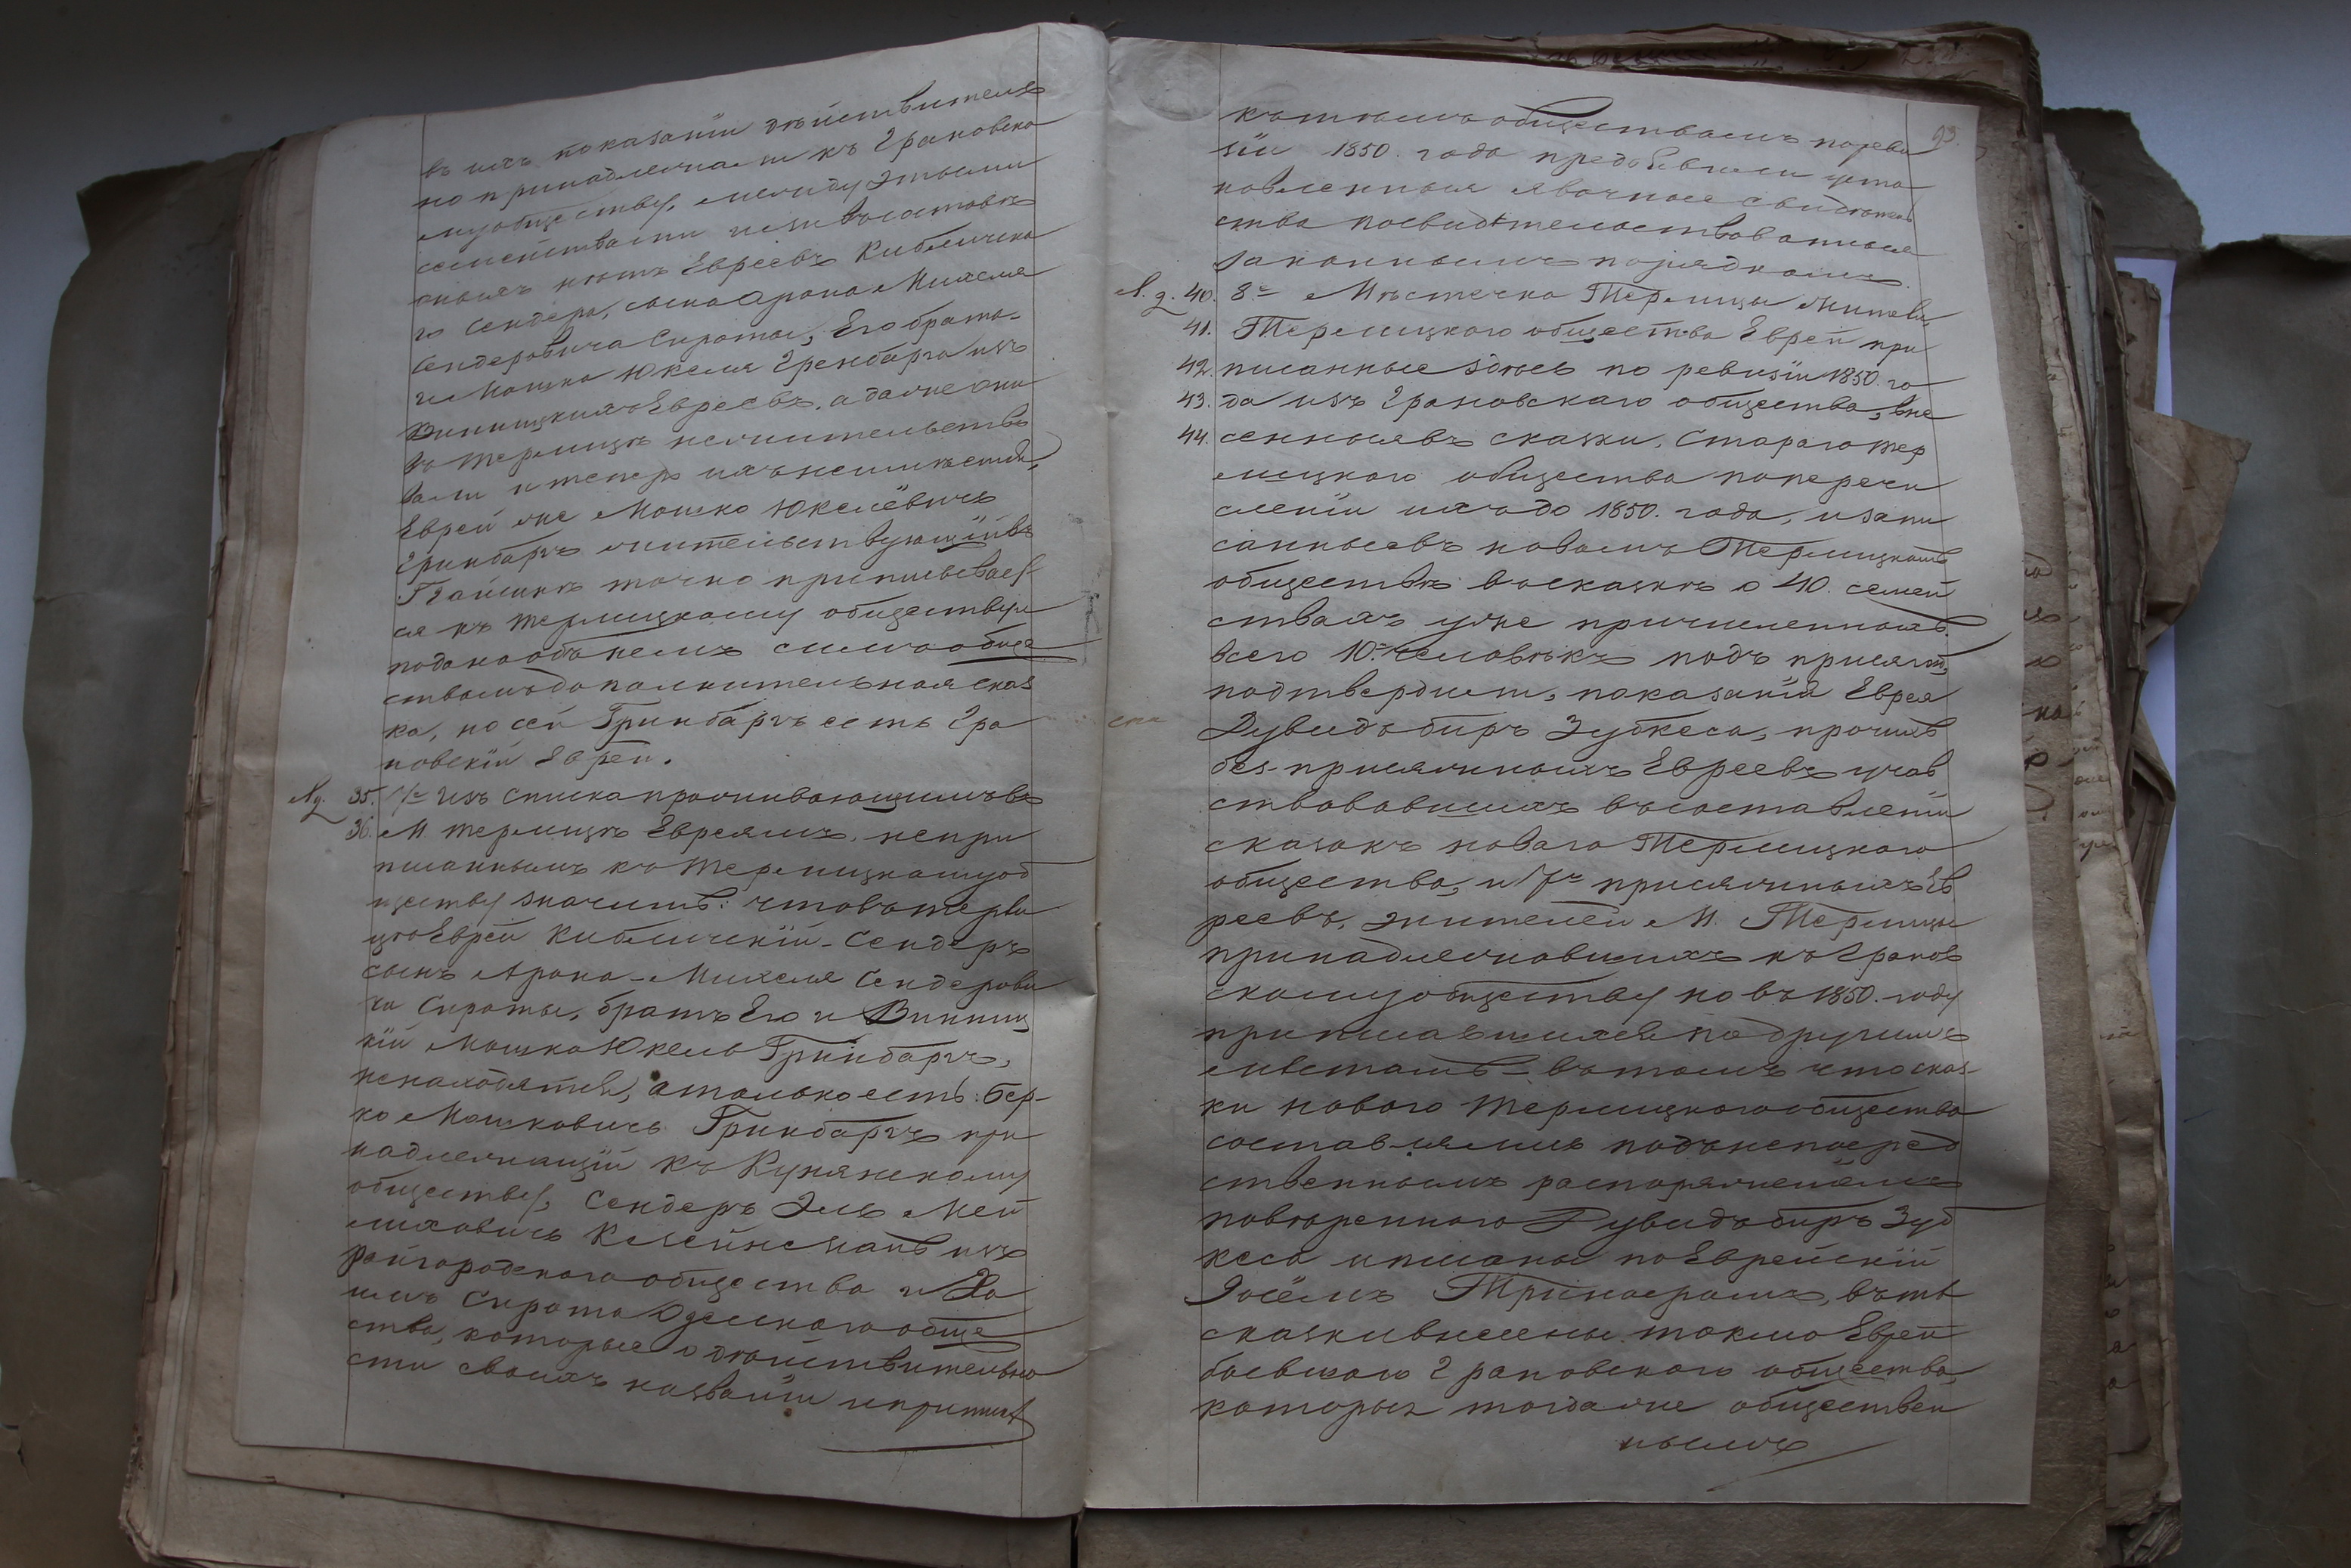 въ ихъ показаніи дѣйствитель
но принадлежали къ Грановско
му обществу, между этими
семействами и изъ восставлен
ныхъ нѣтъ Евреевъ Кибличска
го Сендера, сына Арона Михеля
Сендеровича Сироты, Его брата
и Мошка Юкеля Гренбарга изъ
Винницкихъ Евреевъ, а даже они
въ Терлицѣ нежительство
вали и теперь ихъ неимѣется,
Еврей же Мошко Юкелёвичъ
Гринбаргъ жительствующій въ
Гайсинѣ точно приписывает
ся къ Терлицкому обществу и
подана объ немъ симъ обще
ствомъ дополнительная сказ
ка, но сей Гринбаргъ есть Гра
новскій Еврей.
Лд. 35. 7е Изъ списка проживающимъ въ
36. М Терлицѣ Евреямъ, непри
писаннымъ къ Терлицкому об
ществу значитъ: что въ Терли
цѣ Еврей Кибличскій Сендеръ
сынъ Арона-Михеля Сендерови
ча Сироты, братъ Его и Винниц
кій Мошка Юкель Гринбаргъ,
ненаходятся, а только есть: Бер-
ко Мошковичъ Гринбаргъ при
надлежащій къ Кунянскому
обществу, Сендеръ Эль Мей
лиховичъ Клейнманъ изъ
Райгородского общества и Ха
имъ Сирота Одесского обще
ства, которые о дѣйствительно
сти своихъ названій и припис
93.
къ тѣмъ обществамъ по реви
зіи 1850. года предъявили уста
новленныя явочные свидѣтель
ства посвидѣтельствованныя
законнымъ порядкомъ.
Л. д. 40. 8е Мѣстечка Терлицы жители
41. Терлицкого общества Евреи при
42. писанные здѣсь по ревизіи 1850. го
43. да изъ Грановскаго общества, вне
44. сенныя въ сказки, Стараго Тер
лицкого общества по перечи
сленіи ихъ до 1850. года, и запи
санные въ новомъ Терлицкомъ
обществѣ въ сказкѣ о 40. семей
ствахъ уже причисленныхъ
всего 10. человѣкъ подъ присягой,
подтвердили, показанія Еврея
Дувидъ биръ Зубкеса, прочихъ
без-присяжныхъ Евреевъ учав
ствовавшихъ въ составленіи
сказокъ новаго Терлицкого
общества, и 7е присяжныхъ Ев
реевъ, жителей М. Терлицы
принадлежавшихъ къ Гранов
скому обществу но въ 1850. году
приписавшихся по другимъ
мѣстамъ въ томъ что сказ-
ки новаго Терлицкого общества
составлялись подъ непосред
ственнымъ распоряженіемъ
повторенного Дувидъ биръ Зуб
кеса и писаны по Еврейскій
Іосёмъ Тринасрамъ, въ тѣ
сказки внесены токмо Евреи
бывшаго Грановского общества,
которых тогда же обществен
нымъ